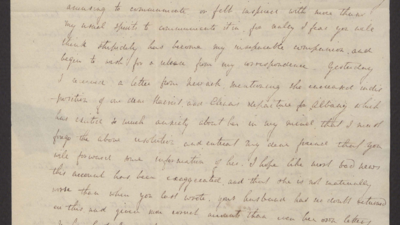 amusing to communicate or felt inspired with more than
my usual spirit to communicate it in, for really I fear you will
think stupidity has become my inseparable companion, and
begin to wish for a release from my correspondence. Yesterday
I received a letter from Newark mentioning the continued indis-
position of our dear and departure for Albany which
has excited so much anxiety about her in my mind that I must
forgo the above and entreat my dear friend that you
will forward me information of her. I hope like most bad news
this account has been exaggerated and that she is not materially
worse than when you last wrote, your husband has no doubt returned
ere this and given you more recent accounts than even her own letters